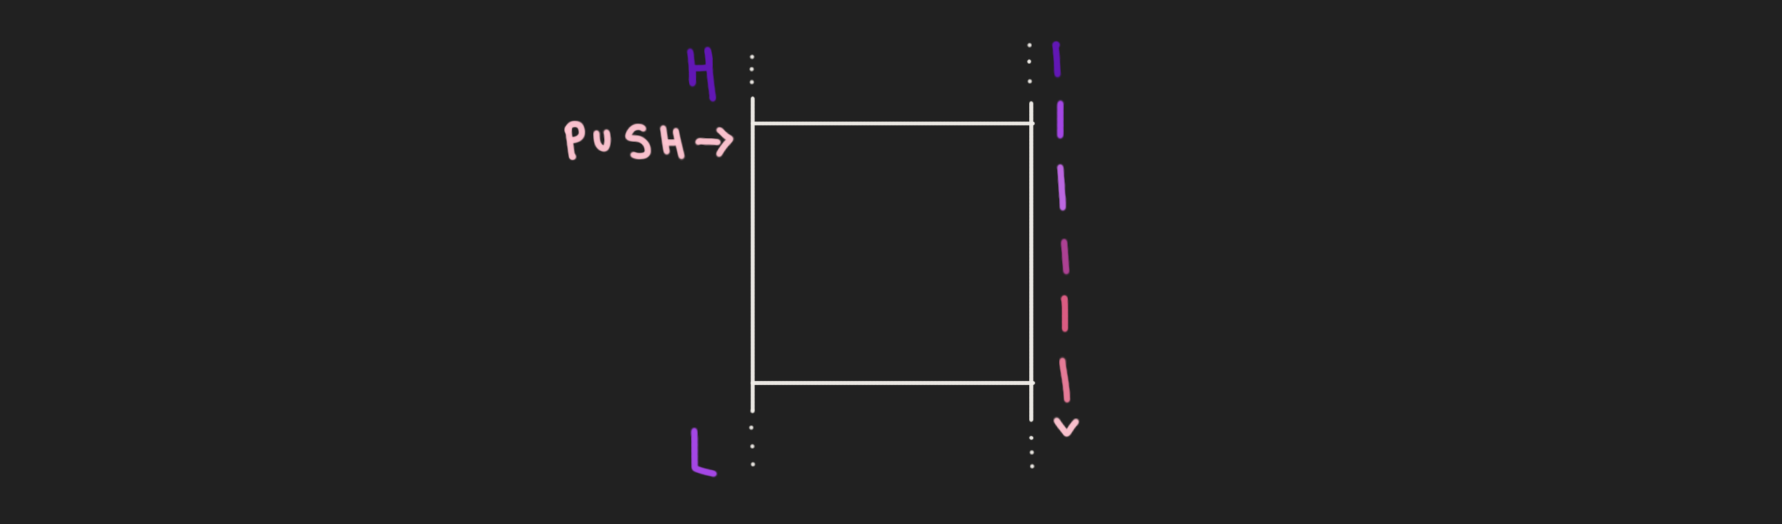 H
PUSH →
L